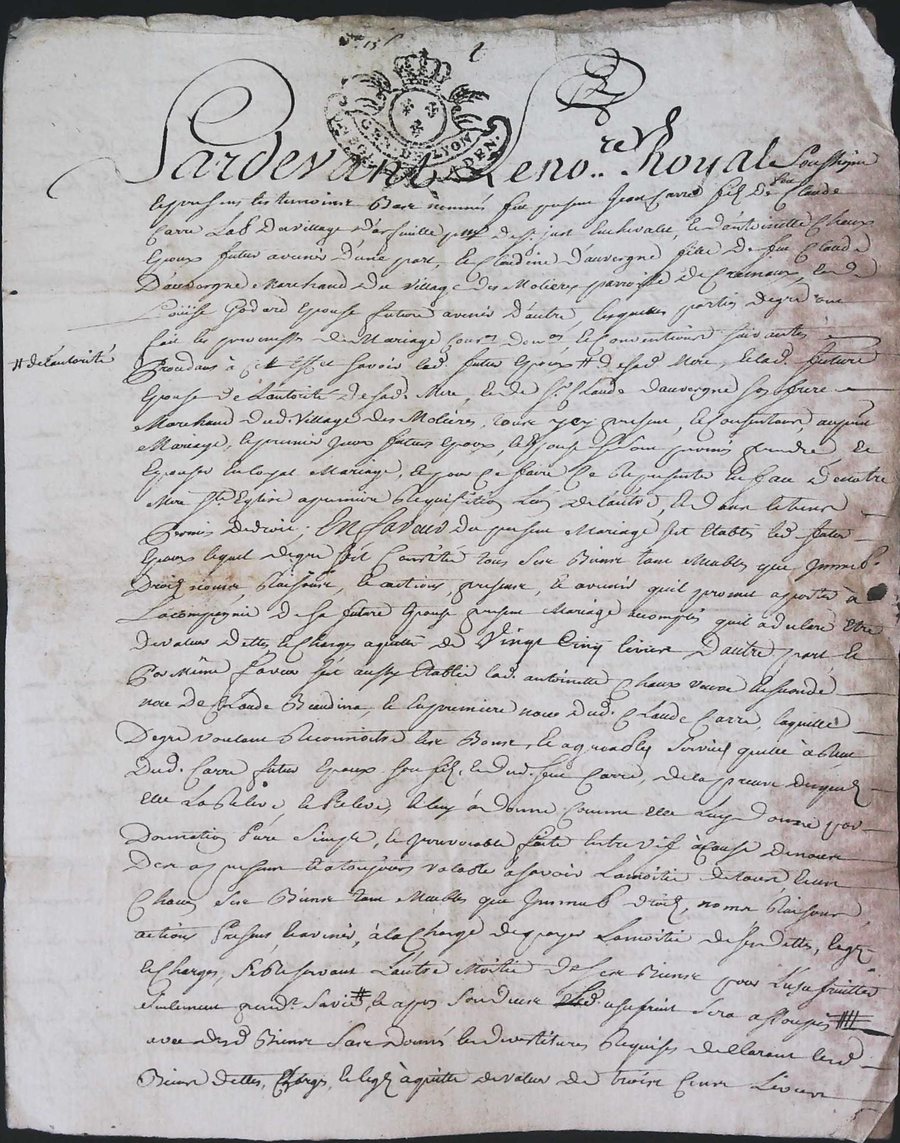 GEN. DE LYON
Pardevant Le no.re Royal Soussigné
et present les temoins Bas nommés fut present Jean Carré fils de feu Claude
Carré Lab. du village d'arfeuille de St. just en chevalet, et d'antoinette Chaux
Epoux futur avenir d'une part, et Claudine d'auvergne fille de feu Claude
D'auvergne Marchand du village des Molieres parroisse de Cremeaux, et de
Louise Godard Epouse future avenir d'autre lesquelles parties degré ont
fait les promesses de Mariage et Conventions suivantes
# de l'autorité
Procedans à cet Effet savoir led. futur Epoux # de sad. Mere, et lad. future
Epouse de L'autorité de sad. Mere, et de Sr. Claude dauvergne son frere
Marchand dud. Village des Molieres, tous icy present, et Consentant, au present
Mariage, lesquels futurs Epoux, et Epouse se sont promis prendre et
Epouser en loyal Mariage, et pour ce faire se presenter en face de notre
Mere Ste. Eglise a premiere Requisition L'un de l'autre,
Permis de droit, En faveur du present Mariage s'est Etably led. futur
Epoux lequel degré s'est Constitué tous ses Biens tant Meubles que Immeub.
Droits noms, Raisons, et actions, presens, et avenir qu'il promet aporter à
La compagnie de sa future Epouse present Mariage accomply qu'il à declaré être
de valeur dettes et Charges aquittés de Vingt Cinq livres D'autre part et
Par Même faveur s'est aussy Etablie lad. antoinette Chaux veuve en seconde
noce de Claude Baudina, et en premiere noce dud. Claude Carré, laquelle
Degré voulant Reconnoitre les Bons, et agreables Services qu'elle à Reçu
Dud. Carré futur Epoux son fils, et dud. feu Carré, de la preuve desquels
Elle La Relevé, et Releve, et luy à donné comme elle Luy donne par
Donnation Pure Simple, et irrevocable faite entre vif à cause de noces
Des a present et a toujours valable a savoir La moitié de tous et un
Chacun ses Biens tant Meubles que Immeub. Droits, noms Raisons
actions Presens, et avenir, à la Charge de payer La moitié de ses dettes, legs
et Charges, se Reservant L'autre Moitié de ses Biens pour L'usufruitter
seulement pend.t sa vie # et apres son deces led. usufruit sera assoupy
avec desd. Biens sus donnés et devestitures Requises declarant lesd.
Biens dettes, Charges, et legs aquittés de valeur de trois Cens Livres